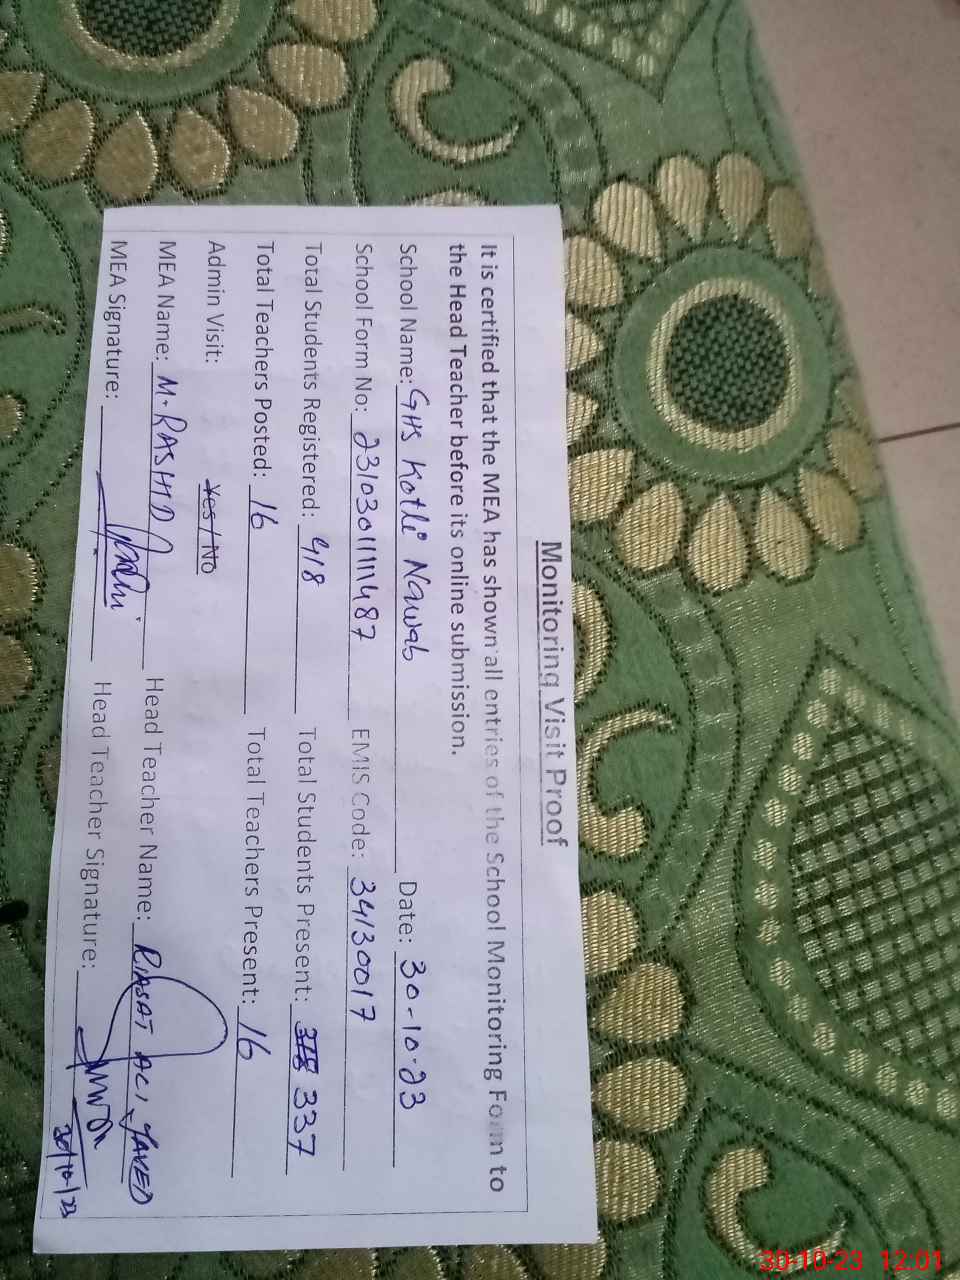 Monitoring Visit Proof
It is certified that the MEA has shown all entries of the School Monitoring Form to
the Head Teacher before its online submission.
School Name: GHS Kotli Nawab Date: 30-10-23
School Form No: 2310301111487 EMIS Code: 34130017
Total Students Registered: 418 Total Students Present: 337
Total Teachers Posted: 16 Total Teachers Present: 16
Admin Visit: Yes / No
MEA Name: M. RASHID Head Teacher Name: RIASAT ALI JAVED
MEA Signature: Head Teacher Signature:
30/10/23
30-10-23 12:01